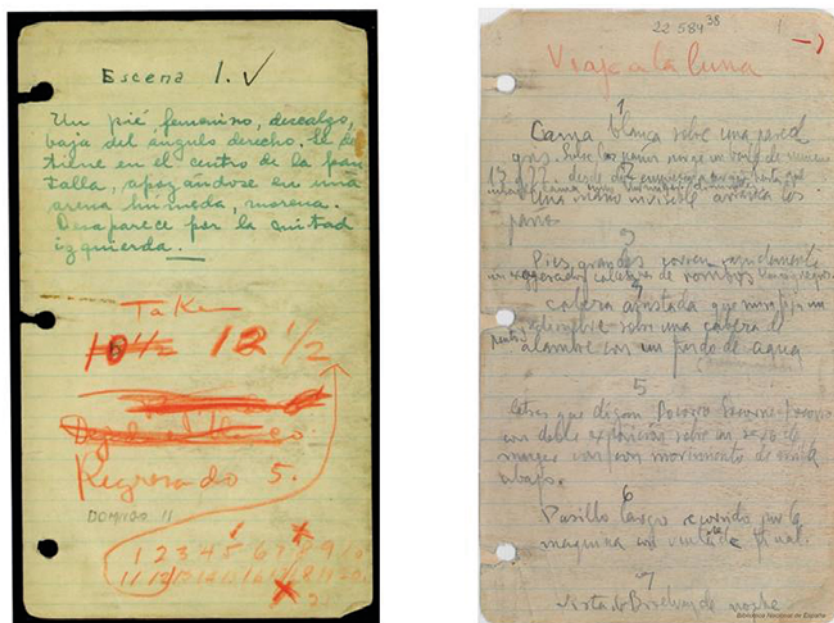 Escena 1. ✓
Un pié femenino, descalzo,
baja del ángulo derecho. Se de
tiene en el centro de la pan
talla, apoyándose en una
arena húmeda, morena.
Desaparece por la mitad
izquierda.
Take
10 1/2 12 1/2
Regresado 5.
DOMINGO 11
1 2 3 4 5 6 7 8 9 10
11 12 13 14 15 16 17 18 19 20
22 584 38
1
Viaje a la luna
1
Cama blanca sobre una pared
gris. Sobre los paños surge un baile de números
13 y 22. desde dos empiezan a surgir hasta que
cubren la cama como hormigas diminutas
2
Una mano invisible arranca los
paños.
3
Pies grandes corren rapidamente
con exagerados calcetines de rombos blanco y negro
4
Cabeza asustada que mira fija un
punto y se disuelve sobre una cabeza de
alambre con un fondo de agua
5
Letras que digan Socorro Socorro Socorro
con doble exposición sobre un sexo de
mujer con movimiento de arriba
abajo.
6
Pasillo largo recorrido por la
maquina con ventana de final.
7
Vista de Broadway de noche
Biblioteca Nacional de España